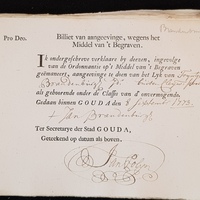 Pro Deo.
Billiet van aangeevinge, wegens het
Middel van 't Begraven.
Ik ondergeschreve verklaare by deezen, ingevolge
van de Ordonnantie op 't Middel van 't Begraven
geëmaneert, aangeevinge te doen van het Lyk van
Brandenburgh
als gehoorende onder de Classe van d'onvermogende.
Gedaan binnen GOUDA, den 8 1773
+ Jan Brandenburgh
Ter Secretarye der Stad GOUDA,
Geteekend op datum als boven.